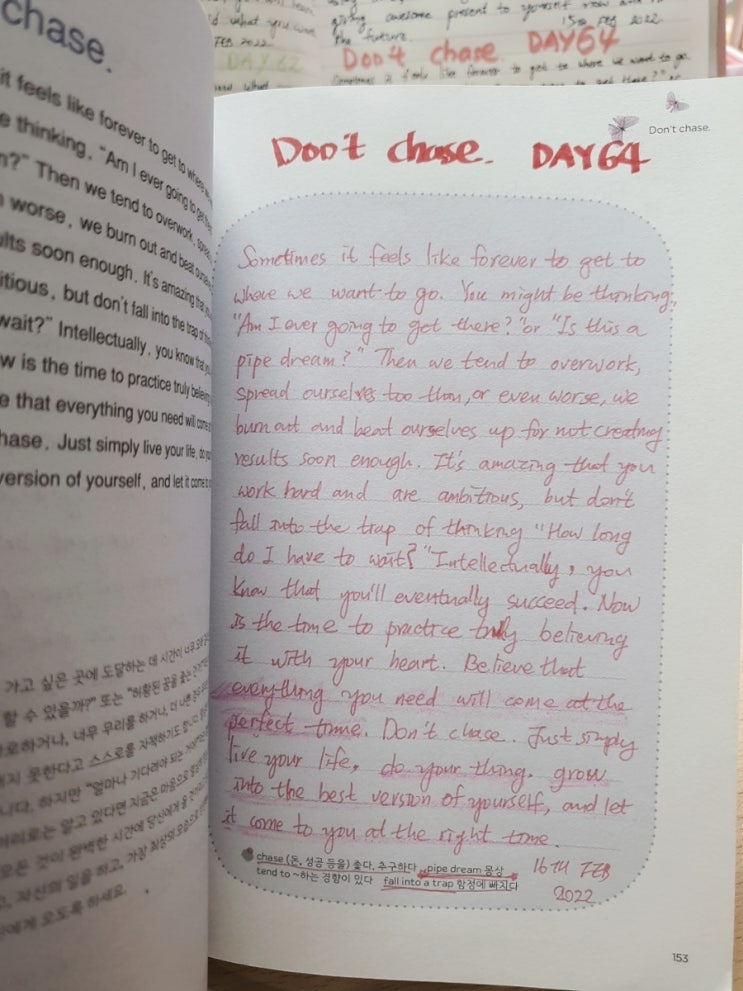 d what you
giving awesome present to yourself now and in
the future.
15th FEB 2022
FEB 2022
DAY 62
Don't chase. DAY64
Sometimes it feels like forever to get to where we want to go.
chase.
it feels like forever to get to where
e thinking, "Am I ever going to get
n?" Then we tend to overwork,
worse, we burn out and beat
lts soon enough. It's amazing that
itious, but don't fall into the trap of
wait?" Intellectually, you know that
w is the time to practice truly believing
e that everything you need will come
hase. Just simply live your life, do
version of yourself, and let it come to
가고 싶은 곳에 도달하는 데 시간이
할 수 있을까?" 또는 "허황된 꿈을 쫓는
로하거나, 너무 무리를 하거나, 더
지 못한다고 스스로를 자책하기도
니다. 하지만 "얼마나 기다려야 되는
머리로는 알고 있다면 지금은 마음으로
모든 것이 완벽한 시간에 당신에게
고, 자신의 일을 하고, 가장 최상의
에게 오도록 하세요.
Don't chase.
Don't chase. DAY64
Sometimes it feels like forever to get to
where we want to go. You might be thinking,
"Am I ever going to get there?" or "Is this a
pipe dream?" Then we tend to overwork,
spread ourselves too thin, or even worse, we
burn out and beat ourselves up for not creating
results soon enough. It's amazing that you
work hard and are ambitious, but don't
fall into the trap of thinking "How long
do I have to wait?" Intellectually, you
know that you'll eventually succeed. Now
is the time to practice truly believing
it with your heart. Believe that
everything you need will come at the
perfect time. Don't chase. Just simply
live your life, do your thing, grow
into the best version of yourself, and let
it come to you at the right time.
chase (돈, 성공 등을) 좇다, 추구하다 pipe dream 몽상
tend to ~하는 경향이 있다 fall into a trap 함정에 빠지다
16TH FEB
2022
153